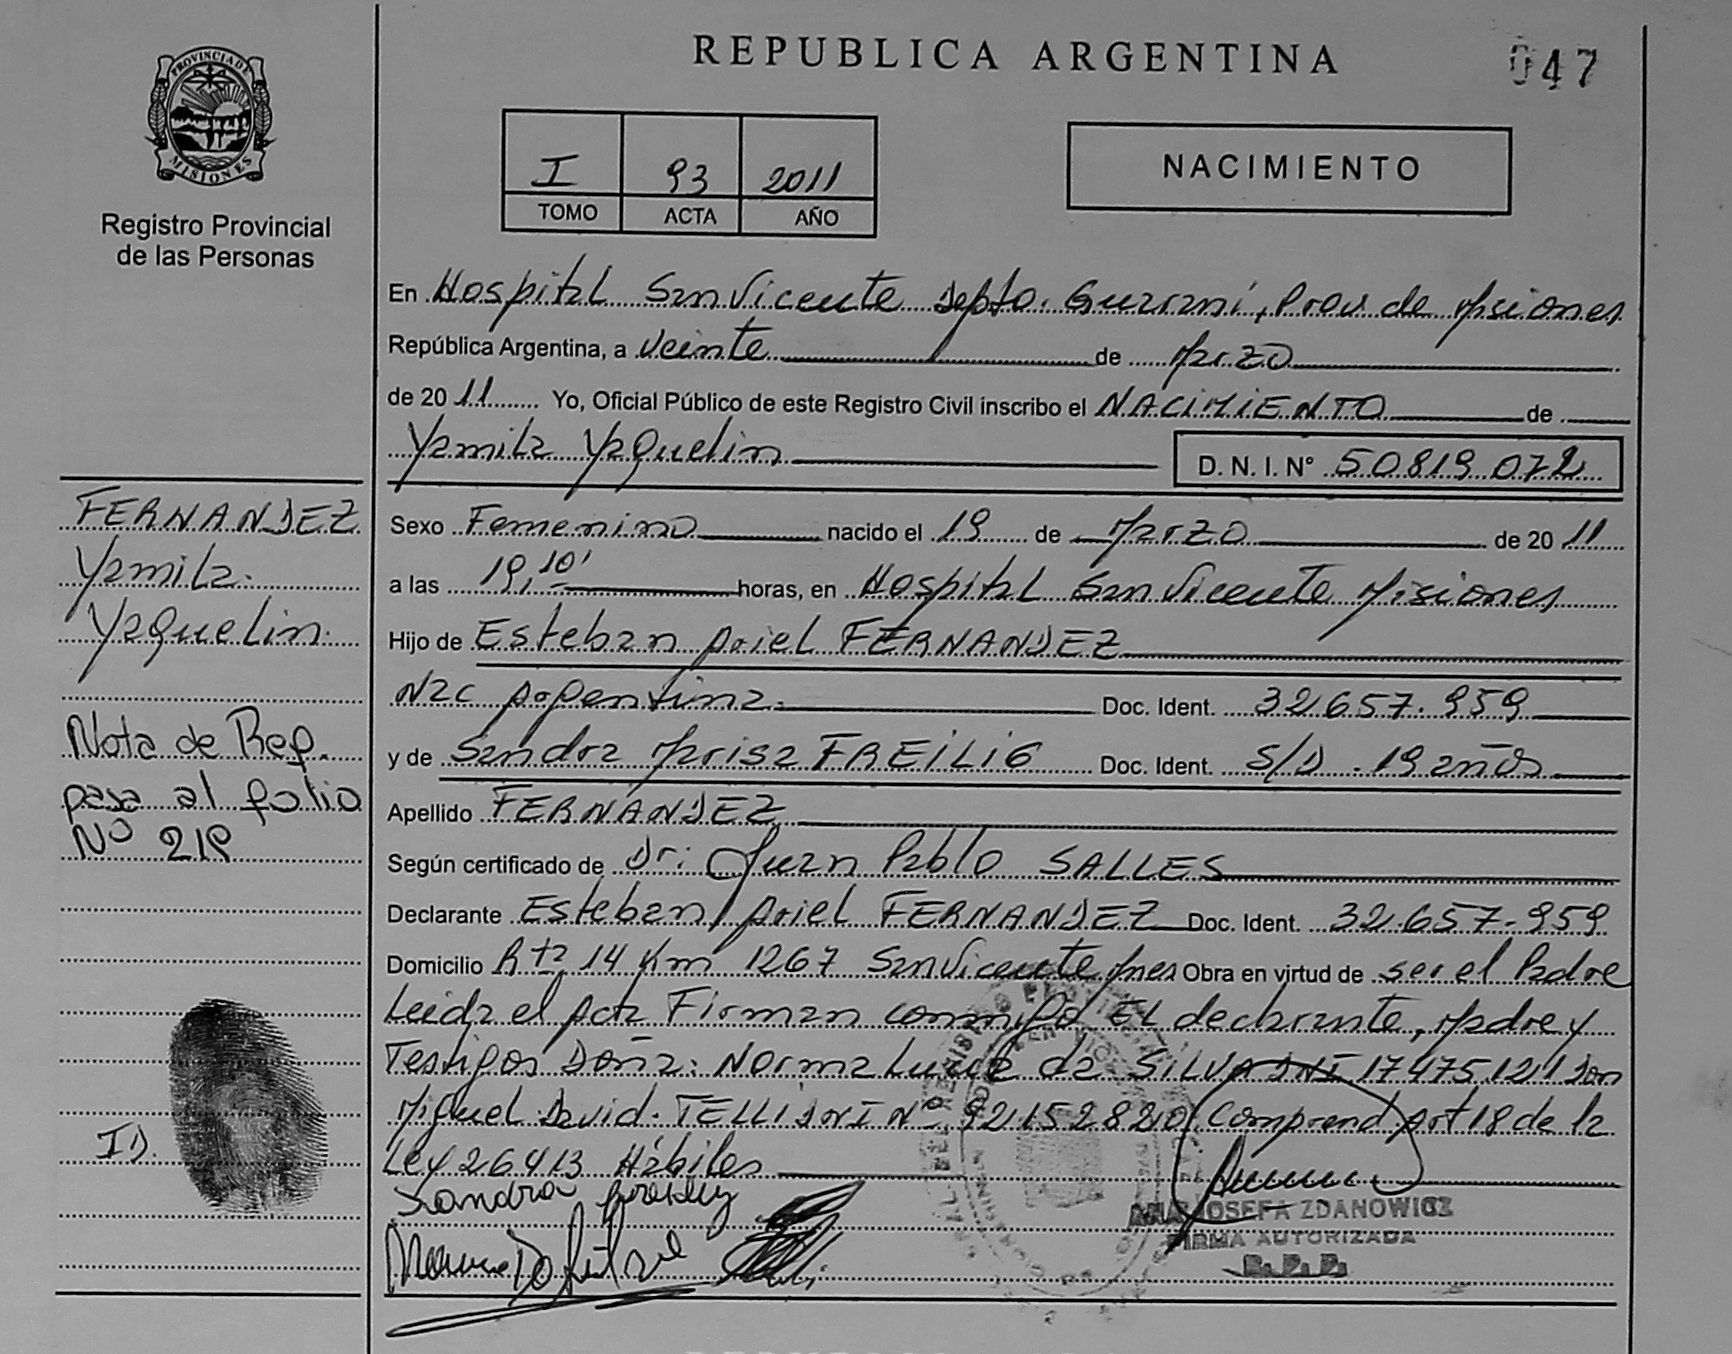 REPUBLICA ARGENTINA
047
PROVINCIA DE
MISIONES
Registro Provincial
de las Personas
I 93 2011
TOMO ACTA AÑO
NACIMIENTO
En Hospital San Vicente Depto. Guarani, Prov de Misiones
República Argentina, a Veinte de Marzo
de 20 11 Yo, Oficial Público de este Registro Civil inscribo el NACIMIENTO de
Yamila Yaquelin D. N. I. Nº 50.819.072
FERNANDEZ
Yamila
Yaquelin
Sexo Femenino nacido el 19 de Marzo de 20 11
a las 19,10' horas, en Hospital San Vicente Misiones
Hijo de Esteban Ariel FERNANDEZ
Nac Argentina Doc. Ident. 32.657.959
y de Sandra Marisa FREILIG Doc. Ident. S/D. 19 años
Nota de Rep.
pasa al folio
Nº 219
Apellido FERNANDEZ
Según certificado de Dr: Juan Pablo SALLES
Declarante Esteban Ariel FERNANDEZ Doc. Ident. 32.657.959
Domicilio Rta 14 Km 1267 San Vicente Mnes Obra en virtud de ser el Padre
Leida el Acta Firman conmigo EL declarante, Madre y
Testigos Doña: Norma Lucia da SILVA DNI 17475121 Don
Miguel David TELLI DNI Nº 92152820 Comprend Art 18 de la
Ley 26413 Hábiles
ID.
Sandra
ANA JOSEFA ZDANOWICZ
FIRMA AUTORIZADA
R.P.P.